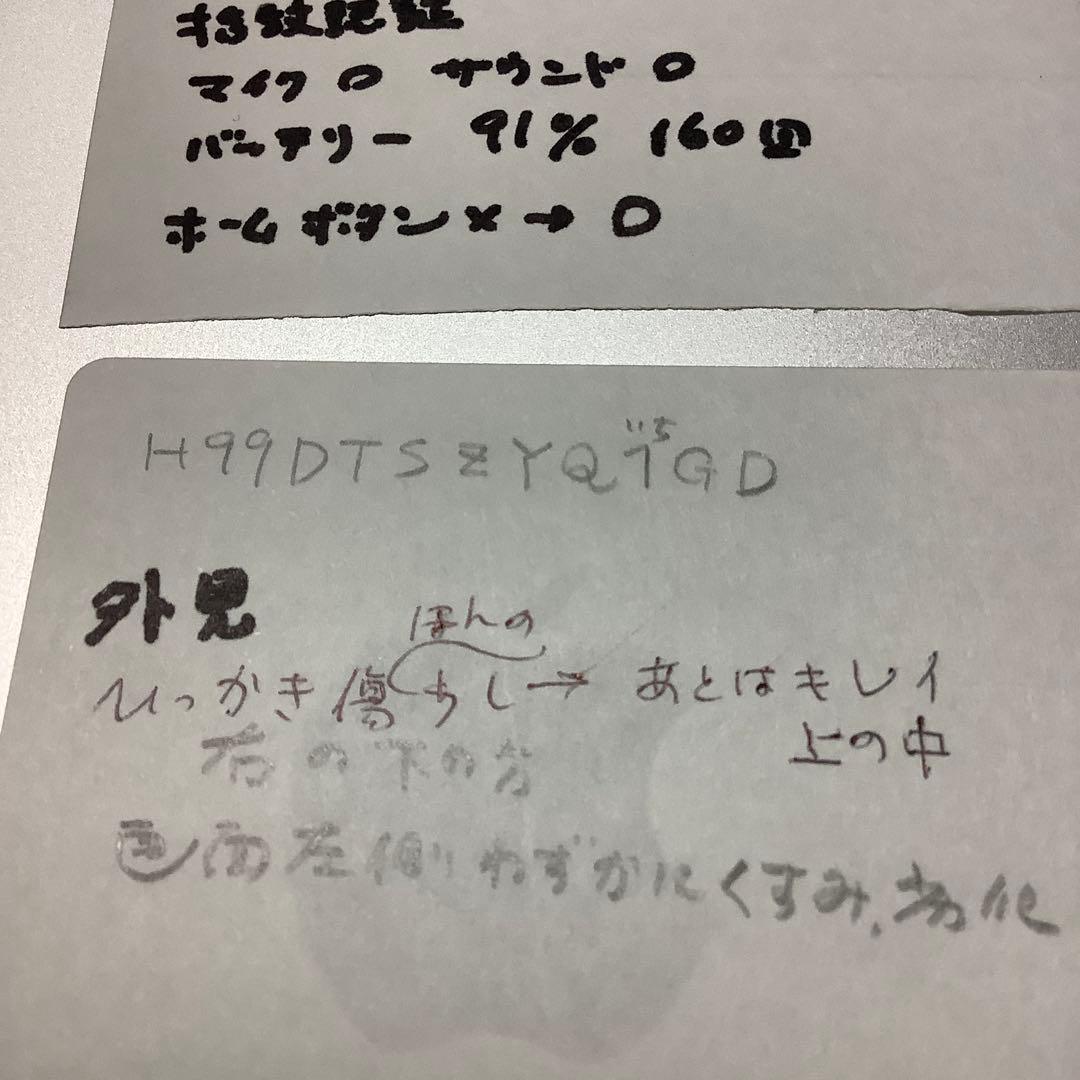 指紋認証
マイク○ サウンド○
バッテリー 91% 160回
ホームボタン×→○
いち
H99DTSZYQ1GD
外見
ほんの
ひっかき傷少し→あとはキレイ
上の中
右の下の方
画面左側わずかにくすみ、劣化